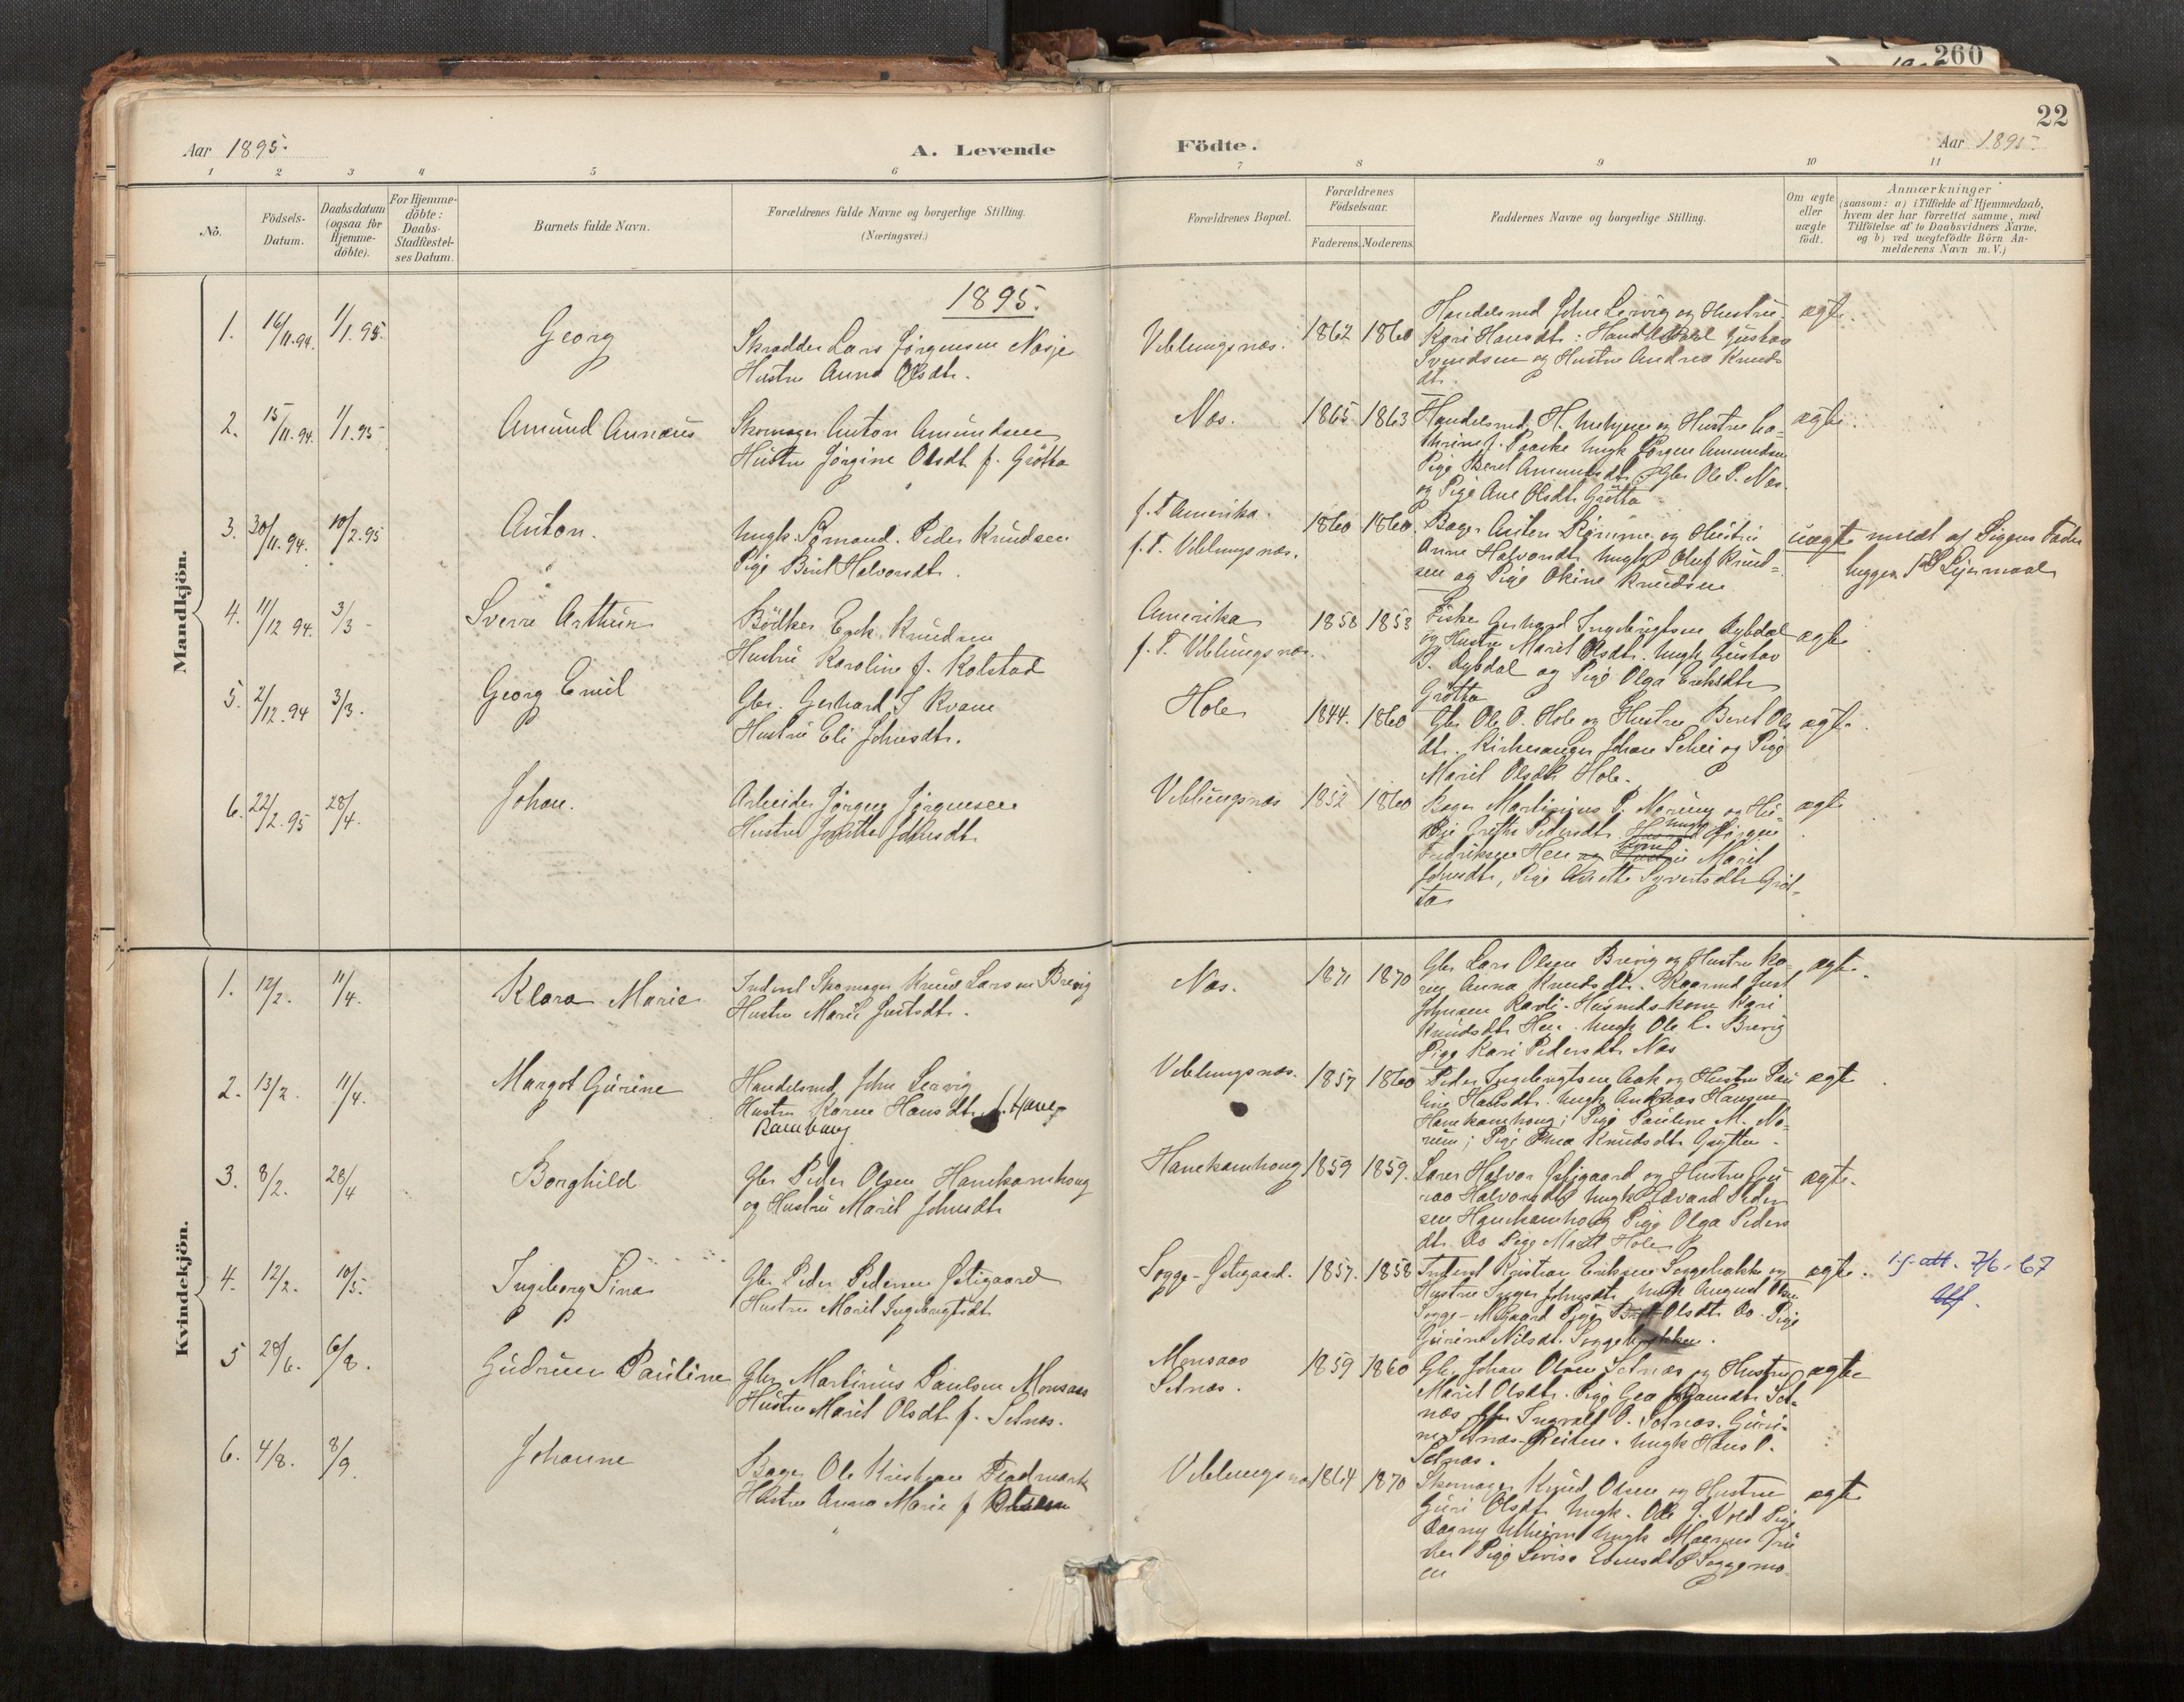 260
22
Aar 1895.
A. Levende
Födte.
Aar 1895
1 2 3 4 5 6 7 8 9 10 11
No.
Födsels-
Datum.
Daabsdatum
(ogsaa for
Hjemme-
döbte).
For Hjemme-
döbte:
Daabs-
Stadfæstel-
ses Datum.
Barnets fulde Navn.
Forældrenes fulde Navne og borgerlige Stilling.
(Næringsvei.)
Forældrenes Bopæl.
Forældrenes
Födselsaar.
Faderens. Moderens.
Faddernes Navne og borgerlige Stilling.
Om ægte
eller
uægte
födt.
Anmærkninger
(saasom: a) i Tilfælde af Hjemmedaab,
hvem der har forrettet samme, med
Tilföielse af to Daabsvidners Navne,
og b) ved uægtefödte Börn An-
melderens Navn m. V.)
Mandkjön.
1895.
1. 16/11.94. 1/1.95. Georg
Skrædder Lars Jørgensen Næsje
Hustru Anna Olsdtr.
Veblungsnæs. 1862 1860
Handelsmd John Leivig og Hustru
Kari Hansdtr: Gustav
Svendsen og Hustru Andrea Knuds
dtr.
ægte.
2. 15/11.94. 1/1.95 Amund Annæus
Skomager Anton Amundsen
Hustru Jørgine Olsdtr f. Grøtta
Næs. 1865 1863
Handelsmd H. og Hustru Ca-
thrine f. Paaske Ungk Jørgen Amundsen
Pige Beret Amundsdtr. Gbr Ole P. Næs.
og Pige Ane Olsdtr Grøtta
ægte.
3. 30/11.94. 10/2.95 Anton.
Ungk. Sømand. Peder Knudsen
Pige Berit Halvorsdtr.
f. T. Amerika.
f. T. Veblungsnæs.
1860 1860.
Bager Anton og Hustru
Anne Halvorsdtr, Ungk Oluf Knud-
sen og Pige Okine Knudsen
uægte meldt af Pigens Fader
begges 1ste Leiermaal
4. 11/12 94. 3/3 - Sverre Arthur
Bödker Enok Knudsen
Hustru Karoline f. Kolstad
Amerika
f. T. Veblungsnæs.
1858 1858
Fisker Gerhard Ingebrigtsen Dybdal
og Hustru Marit Olsdtr. Ungk Gustav
G. Dybdal og Pige Olga Eriksdtr
Grøtta
ægte
5. 2/12.94 3/3. Georg Emil
Gbr. Gerhard J Kvam
Hustru Eli Johnsdtr.
Hole 1844. 1860
Gbr Ole O. Hole og Hustru Beret Ols
dtr. Kirkesanger Johan Schei og Pige
Marit Olsdtr Hole.
ægte.
6. 22/2.95 28/4. Johan.
Arbeider Jørgen Jørgensen
Hustru Johnsdtr
Veblungsnæs 1852 1860
Bager Martinius P. og Hu-
Grethe Pedersdtr. Ungk Jørgen
Fredriksen Hen Marit
Johnsdtr, Pige Anette Syvertsdtr Grøt-
ta
ægte
Kvindekjön.
1. 12/2. 11/4. Klara Marie
Inderst Skomager Knud Larsen Brevig
Hustru Marie Justsdtr.
Næs. 1871 1870
Gbr Lars Olsen Brevig og Hustru Ka-
ren Anna Knudsdtr. Kaarmd Just
Johnsen Rødli. Husmdskone Kari
Knudsdtr Hen. Ungk Ole L. Brevig
Pige Kari Pedersdtr Næs
ægte.
2. 13/2. 11/4. Margot Gurine
Handelsmd John Leivig
Hustru Karen Hansdtr f. Hane-
kamhaug
Veblungsnæs. 1857 1860
Peder Ingebrigtsen Aak og Hustru Pau
line Hansdtr. Ungk Andreas Hansen
Hanekamhoug; Pige Pauline M. No-
rum; Pige Knudsdtr Grytten.
ægte
3. 8/2. 28/4 Borghild
Gbr Peder Olsen Hanekamhoug
og Hustru Marit Johnsdtr
Hanekamhoug 1859 1859.
Lærer Halvor Østigaard og Hustru Gu
roo Halvorsdtr Ungk Edvard Peder
sen Hanekamhoug Pige Olga Peders
dtr Do Pige Marit Hole
ægte.
4. 12/2. 10/5. Ingeborg Sina
Gbr Peder Pedersen Østigaard
Hustru Marit Ingebrigtsdtr
Sogge-Østigaard. 1857. 1858
Inderst Kristian Eriksen Soggebakke og
Hustru Inger Johnsdtr, Ungk August Olsen
Sogge-N.gaard Pige Olsdtr Do. Pige
Gurine Nilsdtr. Soggebakken.
ægte. i.f.-att. 7/6.-67
5 28/6. 6/8. Gudrun Pauline
Gbr Martinus Paulsen Monsaas
Hustru Marit Olsdtr f. Setnæs.
Monsaas
Setnæs.
1859 1860
Gbr Johan Olsen Setnæs og Hustru
Marit Olsdtr. Pige Gea Hansdtr Set-
næs Ingvald O. Setnæs. Guri-
ne Setnæs-Reiten. Ungk Hans O.
Setnæs.
ægte
6. 4/8. 8/9 Johanne
Bager Ole Kristian Fladmark
Hustru Anna Marie f
Veblungsnæs 1864 1870
Skomager Knud Olsen og Hustru
Guri Olsdtr Ungk. Ole J. Vold Pige
Dagny Ungk Magnus
Pige Lovise Soggemo-
en
ægte